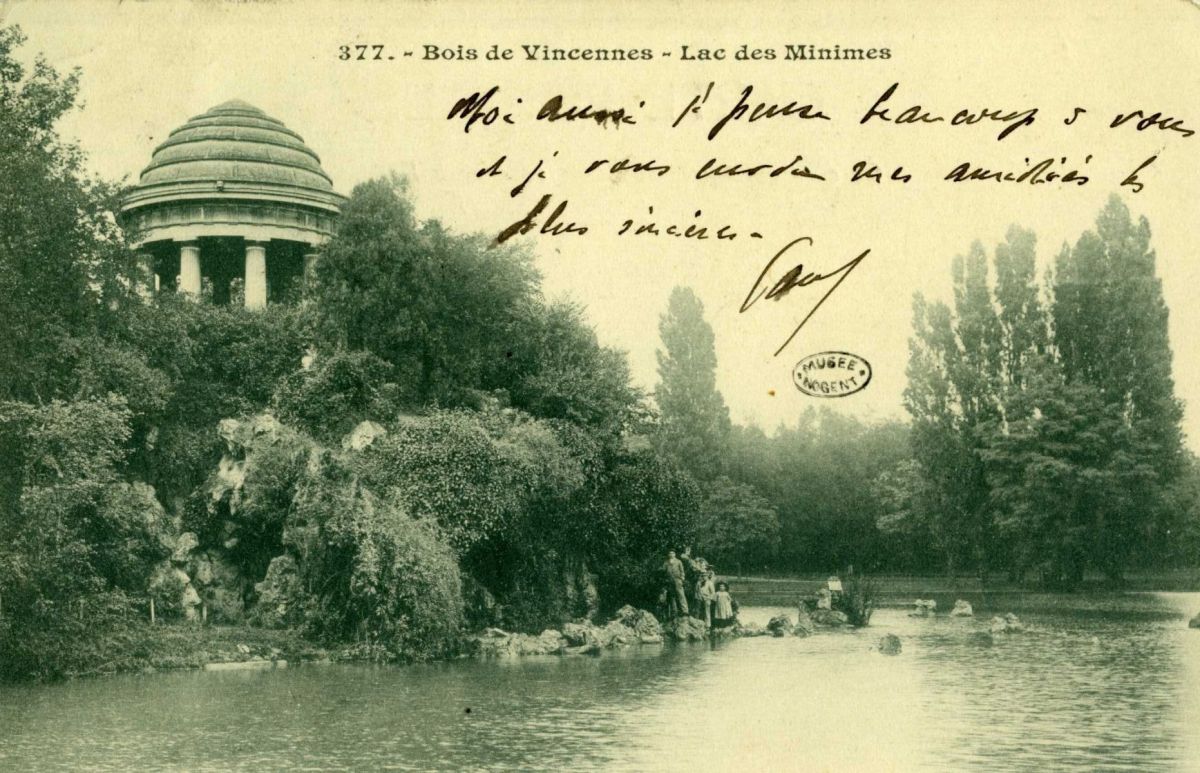 377. - Bois de Vincennes - Lac des Minimes
Moi aussi je pense beaucoup à vous
et je vous envoie mes amitiés les
plus sincères -
MUSEE
NOGENT